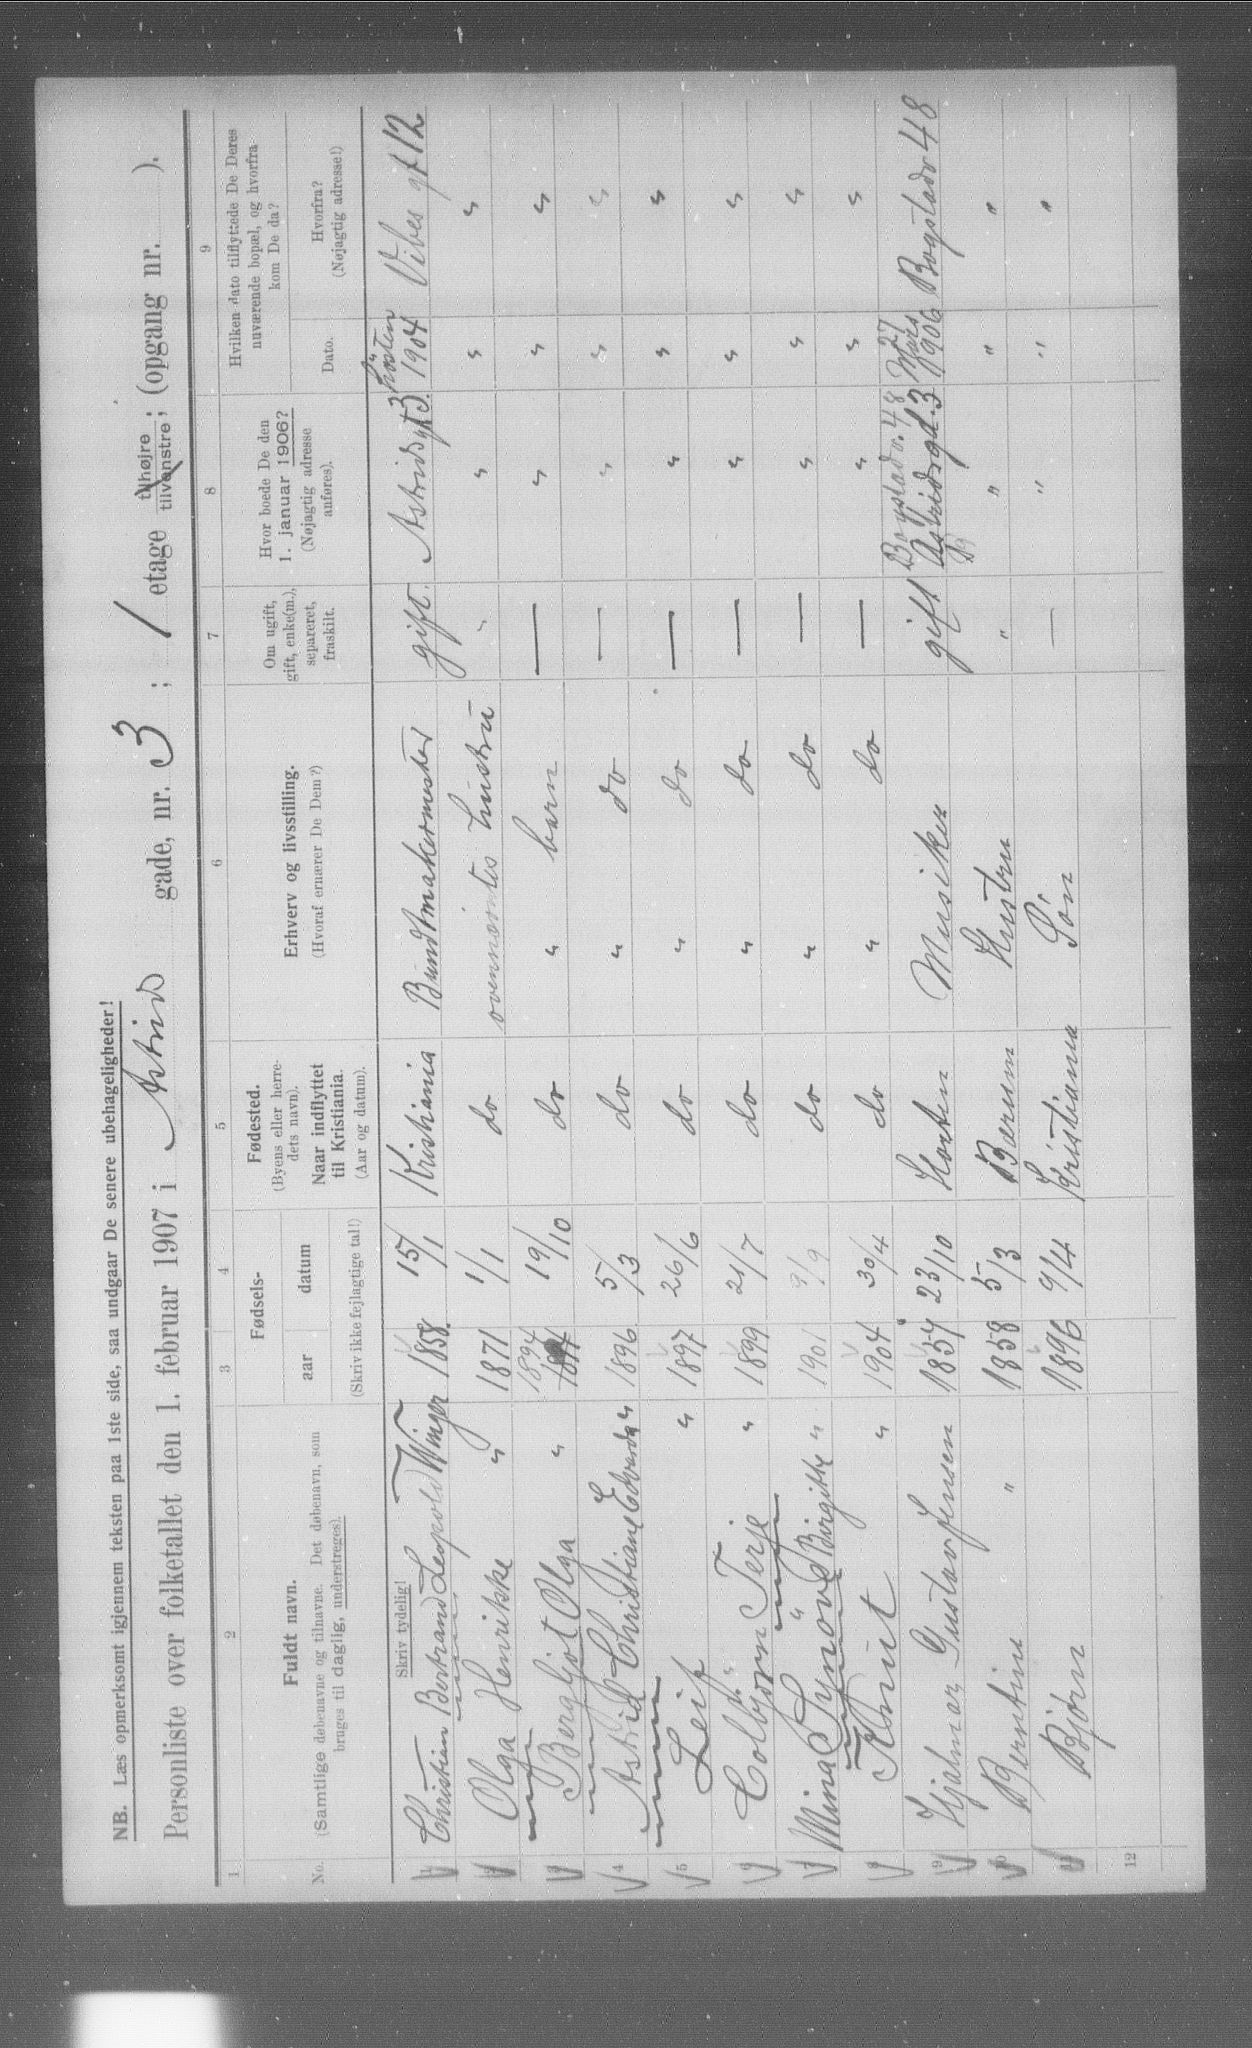 NB. Læs opmerksomt igjennem teksten paa 1ste side, saa undgaar De senere ubehageligheder!
Personliste over folketallet den 1. februar 1907 i Astrids gade, nr. 3 ; 1 etage tilhøjre tilvenstre ; (opgang nr. ).
1 2 3 4 5 6 7 8 9
No. Fuldt navn. (Samtlige døbenavne og tilnavne. Det døbenavn, som bruges til daglig, understreges). Fødsels- aar datum (Skriv ikke fejlagtige tal!) Fødested. (Byens eller herredets navn). Naar indflyttet til Kristiania. (Aar og datum). Erhverv og livsstilling. (Hvoraf ernærer De Dem?) Om ugift, gift, enke(m.), separeret, fraskilt. Hvor boede De den 1. januar 1906? (Nøjagtig adresse anføres). Hvilken dato tilflyttede De Deres nuværende bopæl, og hvorfra kom De da? Dato. Hvorfra? (Nøjagtig adresse!)
Skriv tydelig!
1 Christian Bertrand Leopold Winger 1858. 15/1 Kristiania Bundtmakermester gift. Astridsgt 3. høsten 1904 Vibes gt 12
2 Olga Henrikke " 1871 1/1 do ovennævntes hustru " " " "
3 Bergljot Olga " 1894 19/10 do " barn — " " "
4 Astrid Christiane Edvarda " 1896 5/3 do " do — " " "
5 Leif " 1897 26/6 do " do — " " "
6 Colbjørn Terje " 1899 21/7 do " do — " " "
7 Mina Synøve Birgitte " 1901 9/9 do " do — " " "
8 Knut " 1904 30/4 do " do — " " "
9 Hjalmar Gustav Jensen 1857 23/10 Horten Musiker gift Bogstadv. 48 Astridsgd. 3 27 Mars 1906 Bogstadv 48
10 Berntine " 1858 5/3 Bærum Hustru " " " "
11 Bjørn 1896 9/4 Kristiania Søn — " " "
12